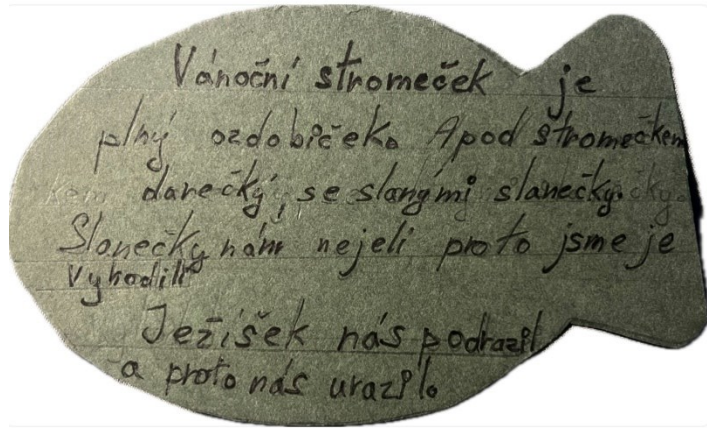 Vánoční stromeček je
plný ozdobiček. A pod stromečkem
danečký, se slanými slanečky.
Slanečky nám nejeli proto jsme je
vyhodili
Ježíšek nás podrazil
a proto nás urazil.